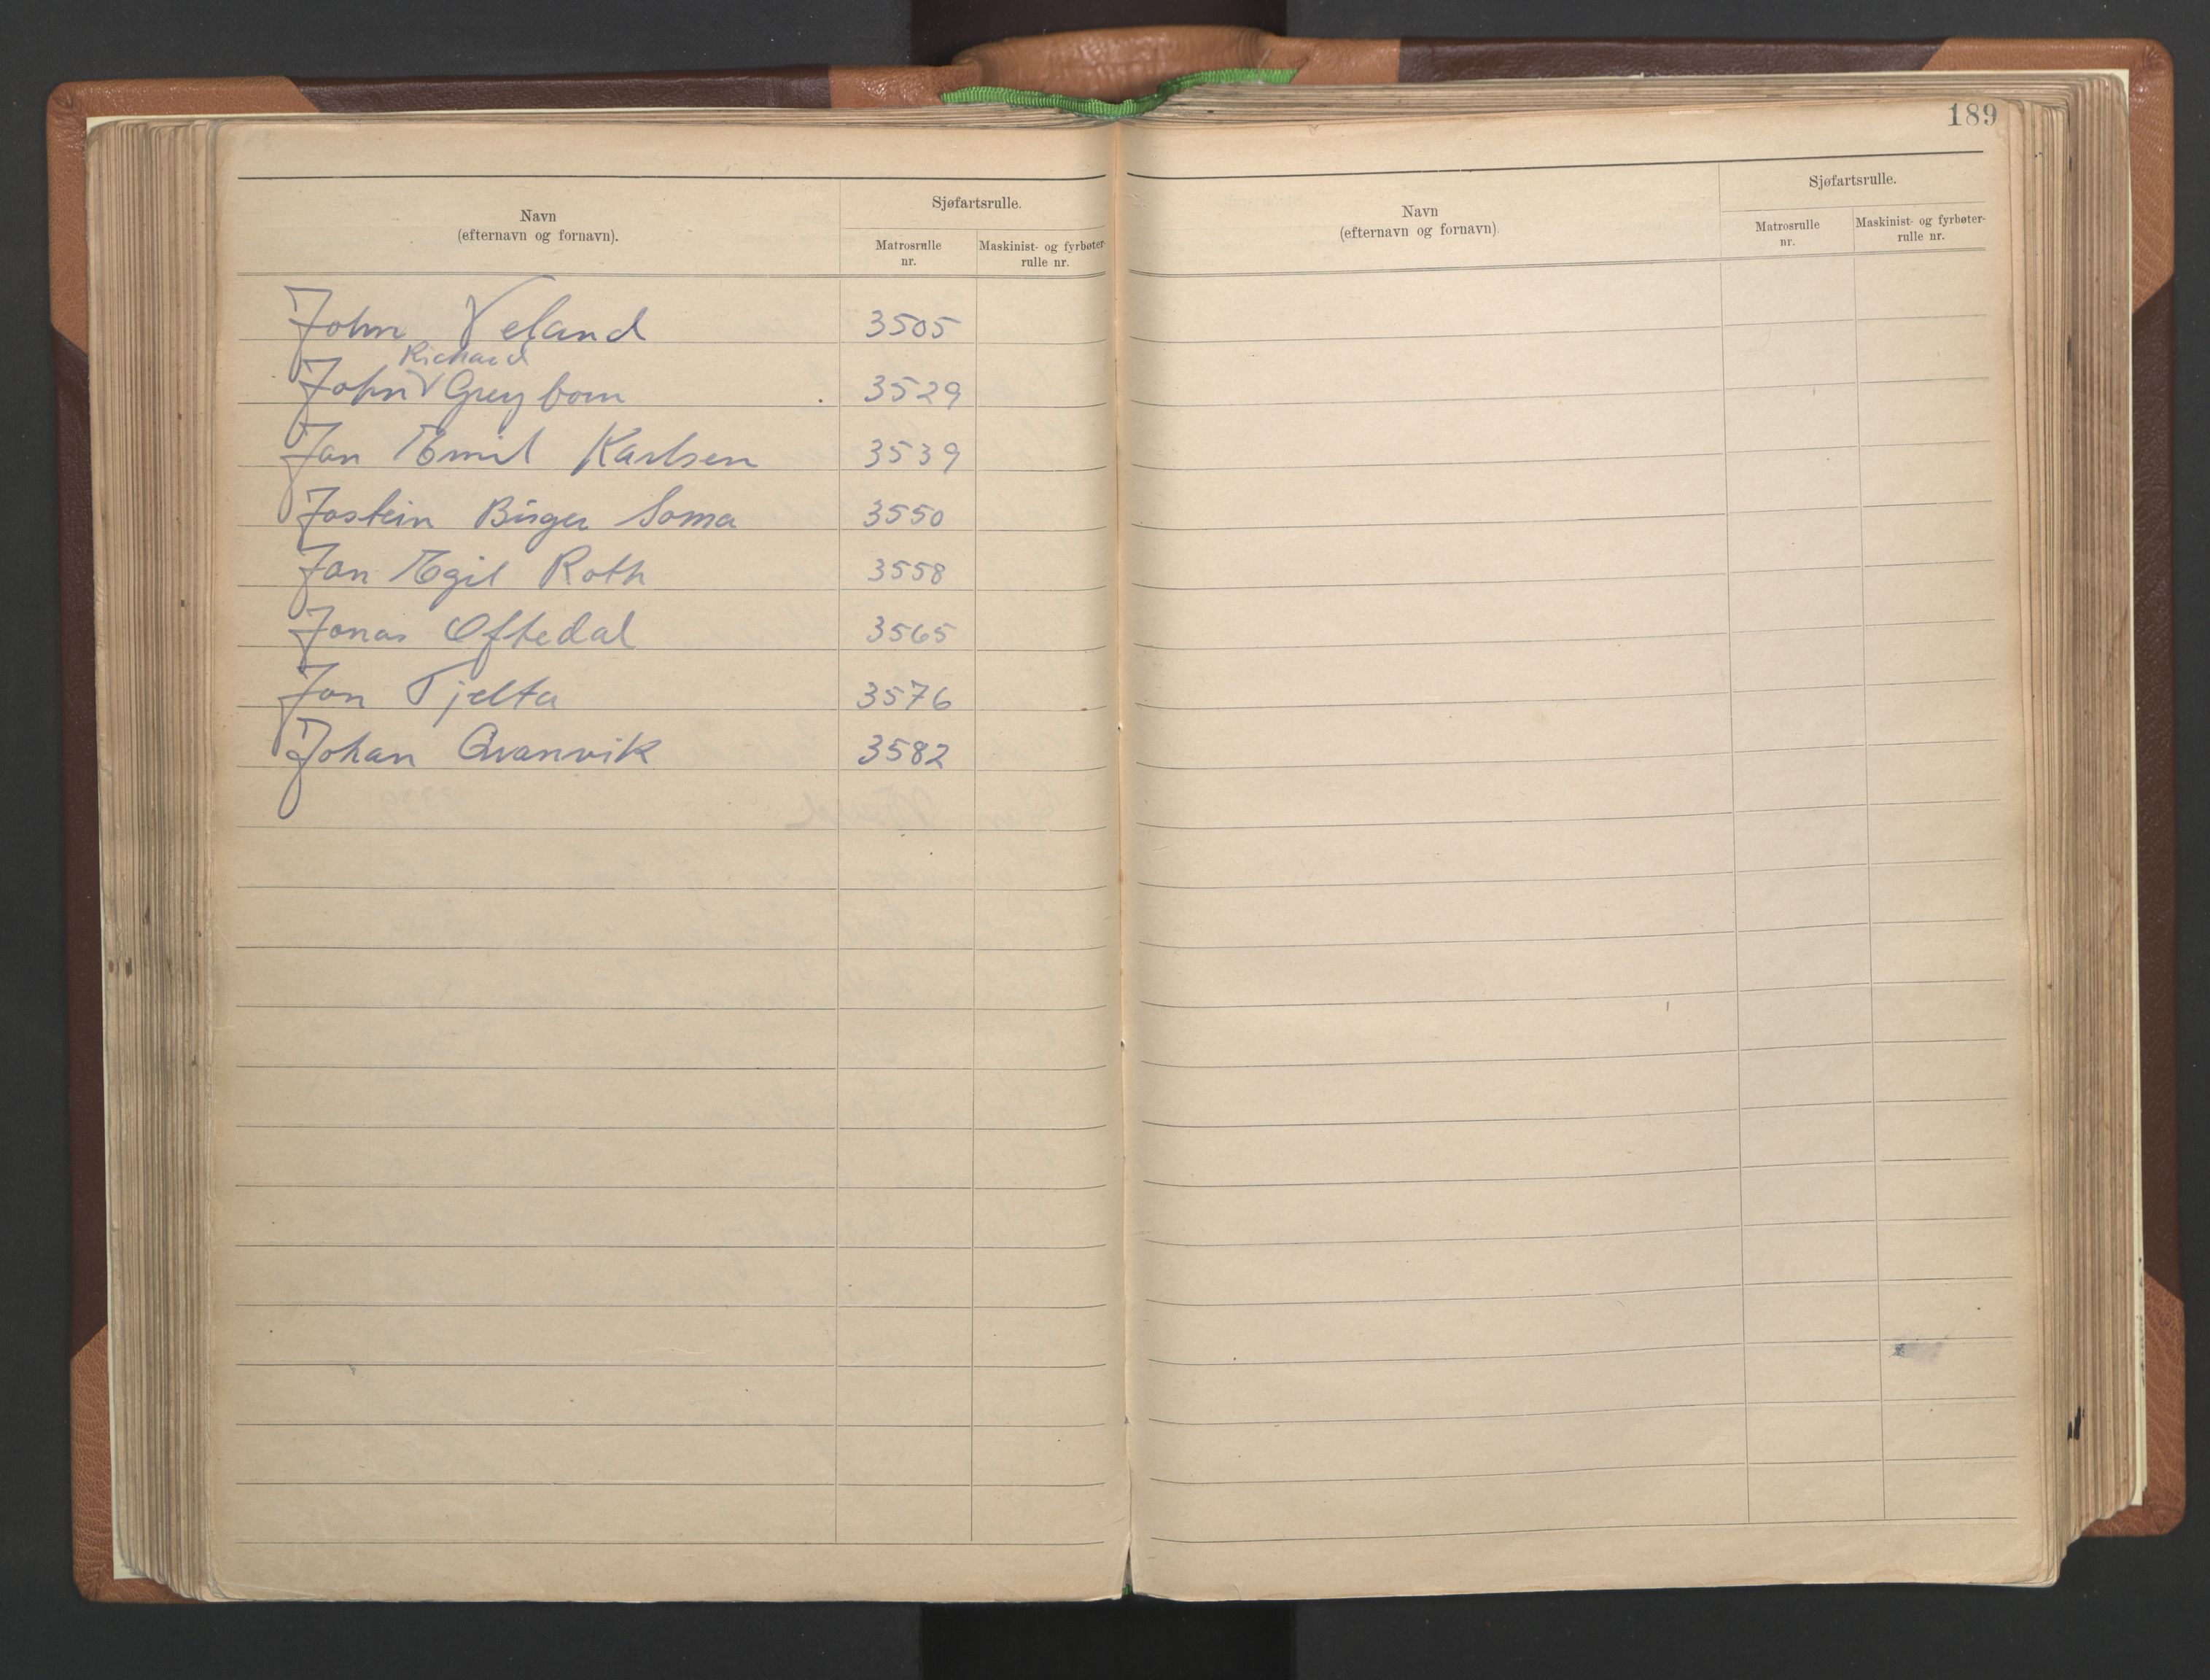 Navn
(efternavn og fornavn).
Sjøfartsrulle.
Matrosrulle
nr.
Maskinist- og fyrbøter-
rulle nr.
John Veland 3505
Richard
John V 3529
Jan Emil Karlsen 3539
Jostein Birger Soma 3550
Jan Egil Roth 3558
Jonas Oftedal 3565
Jon Tjelta 3576
Johan Qvanvik 3582
189
Navn
(efternavn og fornavn)
Sjøfartsrulle.
Matrosrulle
nr.
Maskinist- og fyrbøter-
rulle nr.